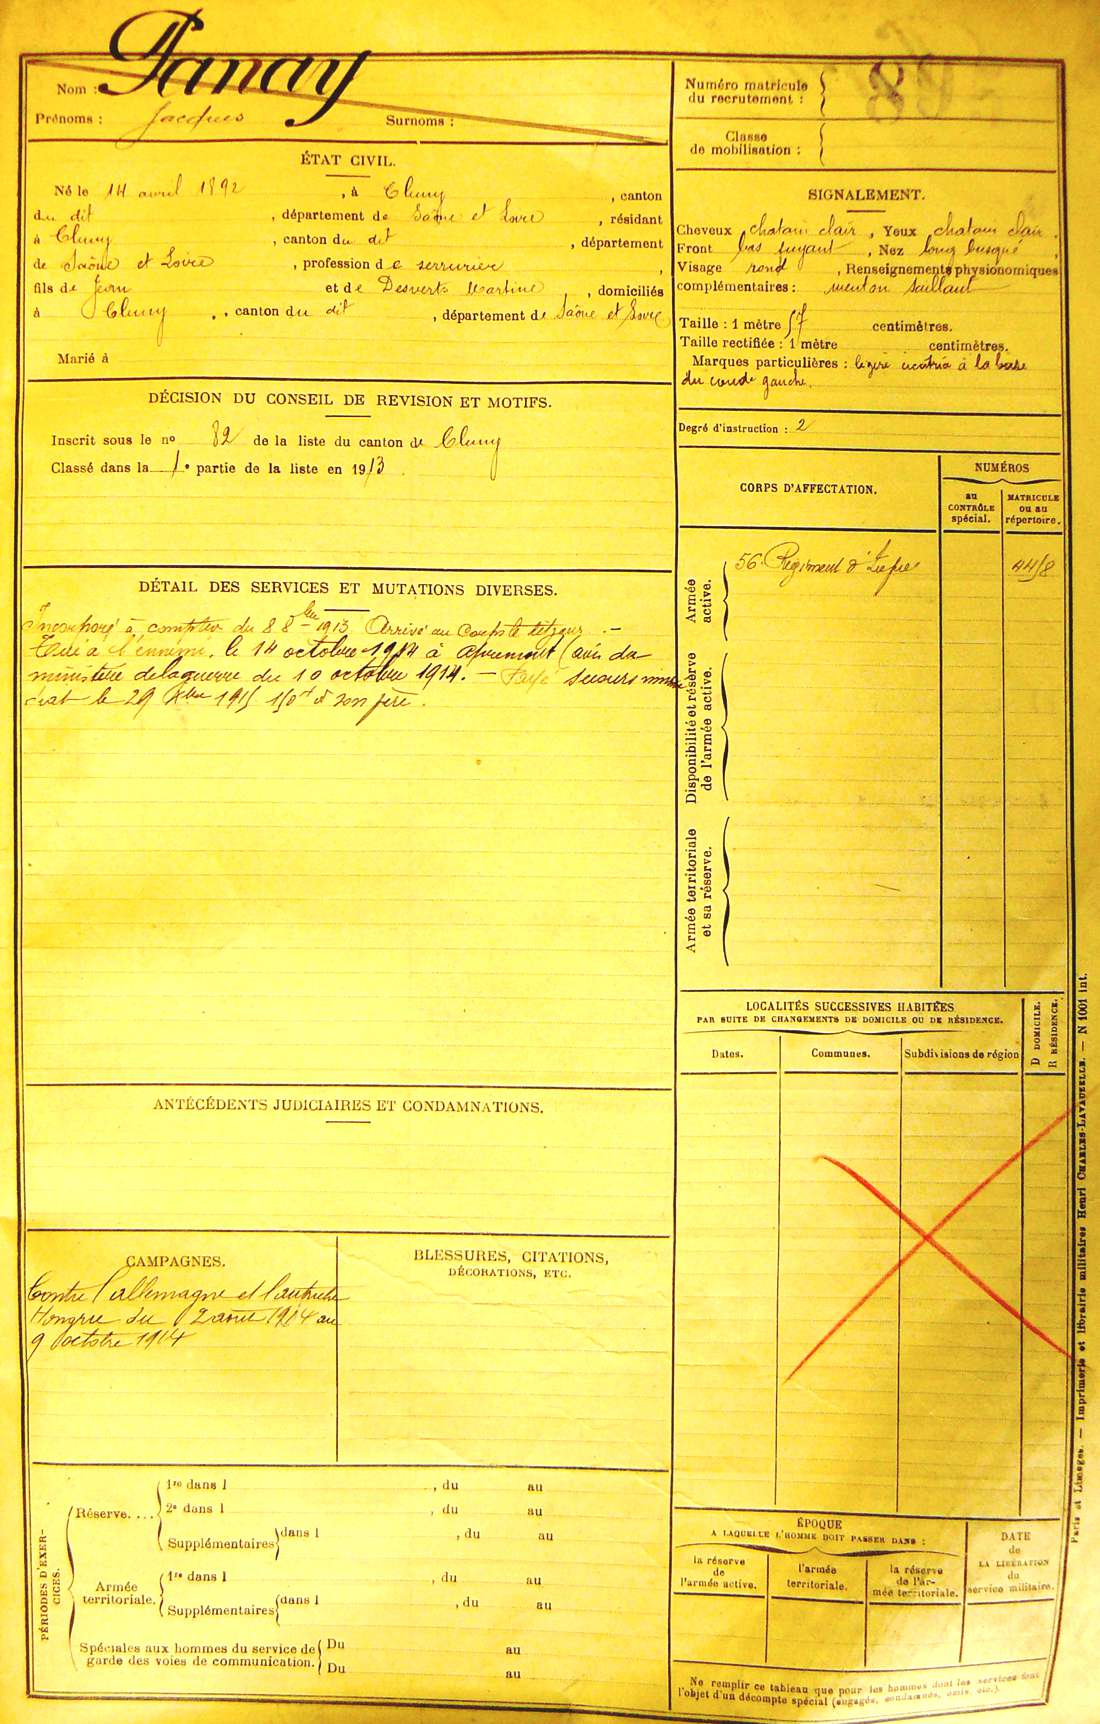 Nom : Panay
Prénoms : Jacques Surnoms :
ÉTAT CIVIL.
Né le 14 avril 1892, à Cluny, canton
du dit, département de Saône et Loire, résidant
à Cluny, canton du dit, département
de Saône et Loire, profession de serrurier,
fils de Jean et de Desverts Martine, domiciliés
à Cluny, canton du dit, département de Saône et Loire
Marié à
DÉCISION DU CONSEIL DE REVISION ET MOTIFS.
Inscrit sous le no 82 de la liste du canton de Cluny
Classé dans la 1e partie de la liste en 1913.
DÉTAIL DES SERVICES ET MUTATIONS DIVERSES.
Incorporé à compter du 8 8bre 1913. Arrivé au Corps le dit jour. —
Tué à l'ennemi, le 14 octobre 1914 à Apremont (avis du
ministère de la guerre du 10 octobre 1914. — Payé secours immé
diat le 29 Xbre 1915 150f à son père.
ANTÉCÉDENTS JUDICIAIRES ET CONDAMNATIONS.
CAMPAGNES.
Contre l'allemagne et l'autriche
Hongrie du 2 août 1914 au
9 octobre 1914
BLESSURES, CITATIONS,
DÉCORATIONS, ETC.
PÉRIODES D'EXER-
CICES.
Réserve....
1re dans l , du au
2e dans l , du au
Supplémentaires dans l , du au
Armée
territoriale.
1re dans l , du au
Supplémentaires dans l , du au
Spéciales aux hommes du service de
garde des voies de communication.
Du au
Du au
Numéro matricule
du recrutement :
Classe
de mobilisation :
SIGNALEMENT.
Cheveux chatain clair, Yeux chatain clair,
Front bas fuyant, Nez long busqué,
Visage rond, Renseignements physionomiques
complémentaires : menton saillant
Taille : 1 mètre 57 centimètres.
Taille rectifiée : 1 mètre centimètres.
Marques particulières : légère cicatrice à la base
du coude gauche.
Degré d'instruction : 2
CORPS D'AFFECTATION.
NUMÉROS
au
CONTRÔLE
spécial.
MATRICULE
ou au
répertoire.
Armée
active.
56e Régiment d'Inf<sup>ie</sup>
4418
Disponibilité et réserve
de l'armée active.
Armée territoriale
et sa réserve.
LOCALITÉS SUCCESSIVES HABITÉES
PAR SUITE DE CHANGEMENTS DE DOMICILE OU DE RÉSIDENCE.
Dates.
Communes.
Subdivisions de région
D DOMICILE.
R RÉSIDENCE.
ÉPOQUE
A LAQUELLE L'HOMME DOIT PASSER DANS :
la réserve
de
l'armée active.
l'armée
territoriale.
la réserve
de l'ar-
mée territoriale.
DATE
de
LA LIBÉRATION
du
service militaire.
Ne remplir ce tableau que pour les hommes dont les services font
l'objet d'un décompte spécial (engagés, condamnés, omis, etc.).
Paris et Limoges. — Imprimerie et librairie militaires Henri CHARLES-LAVAUZELLE. — N 1001 int.